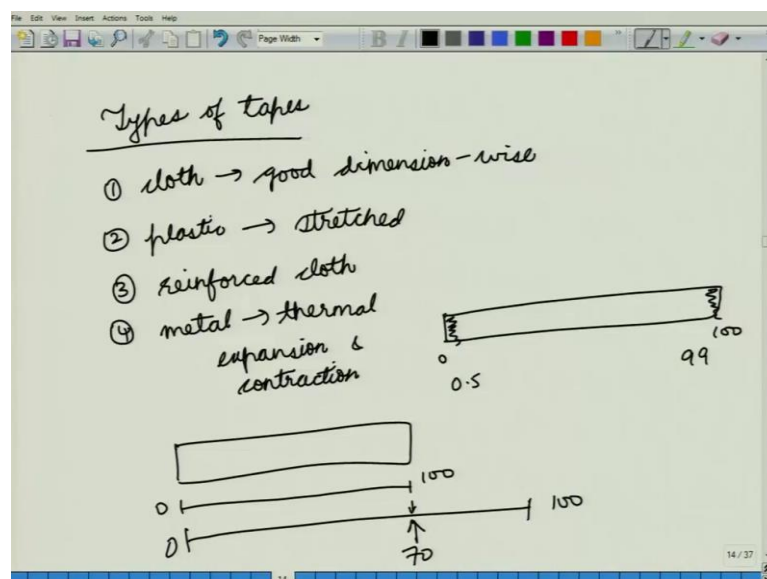 File Edit View Insert Actions Tools Help
Page Width
B I
Types of tapes
① cloth → good dimension-wise
② plastic → stretched
③ reinforced cloth
④ metal → thermal
expansion &
contraction
0 100
0.5 99
0 100
0 100
70
14 / 37